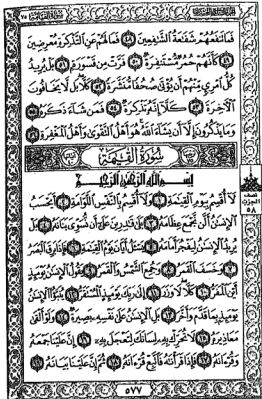 الجزء التاسع والعشرون
سُورَةُ القِيَامَة ٧٥
فَمَا تَنفَعُهُمْ شَفَٰعَةُ ٱلشَّٰفِعِينَ ٤٨ فَمَا لَهُمْ عَنِ ٱلتَّذْكِرَةِ مُعْرِضِينَ
٤٩ كَأَنَّهُمْ حُمُرٌ مُّسْتَنفِرَةٌ ٥٠ فَرَّتْ مِن قَسْوَرَةٍ ٥١ بَلْ يُرِيدُ
كُلُّ ٱمْرِئٍ مِّنْهُمْ أَن يُؤْتَىٰ صُحُفًا مُّنَشَّرَةً ٥٢ كَلَّا بَل لَّا يَخَافُونَ
ٱلْءَاخِرَةَ ٥٣ كَلَّآ إِنَّهُۥ تَذْكِرَةٌ ٥٤ فَمَن شَآءَ ذَكَرَهُۥ ٥٥
وَمَا يَذْكُرُونَ إِلَّآ أَن يَشَآءَ ٱللَّهُ هُوَ أَهْلُ ٱلتَّقْوَىٰ وَأَهْلُ ٱلْمَغْفِرَةِ ٥٦
سُورَةُ القِيَامَةِ
بِسْمِ ٱللَّهِ ٱلرَّحْمَٰنِ ٱلرَّحِيمِ
لَآ أُقْسِمُ بِيَوْمِ ٱلْقِيَٰمَةِ ١ وَلَآ أُقْسِمُ بِٱلنَّفْسِ ٱللَّوَّامَةِ ٢ أَيَحْسَبُ
ٱلْإِنسَٰنُ أَلَّن نَّجْمَعَ عِظَامَهُۥ ٣ بَلَىٰ قَٰدِرِينَ عَلَىٰٓ أَن نُّسَوِّىَ بَنَانَهُۥ ٤ بَلْ
يُرِيدُ ٱلْإِنسَٰنُ لِيَفْجُرَ أَمَامَهُۥ ٥ يَسْـَٔلُ أَيَّانَ يَوْمُ ٱلْقِيَٰمَةِ ٦ فَإِذَا بَرِقَ ٱلْبَصَرُ
٧ وَخَسَفَ ٱلْقَمَرُ ٨ وَجُمِعَ ٱلشَّمْسُ وَٱلْقَمَرُ ٩ يَقُولُ ٱلْإِنسَٰنُ يَوْمَئِذٍ
أَيْنَ ٱلْمَفَرُّ ١٠ كَلَّا لَا وَزَرَ ١١ إِلَىٰ رَبِّكَ يَوْمَئِذٍ ٱلْمُسْتَقَرُّ ١٢ يُنَبَّؤُا۟ ٱلْإِنسَٰنُ
يَوْمَئِذٍۭ بِمَا قَدَّمَ وَأَخَّرَ ١٣ بَلِ ٱلْإِنسَٰنُ عَلَىٰ نَفْسِهِۦ بَصِيرَةٌ ١٤ وَلَوْ أَلْقَىٰ
مَعَاذِيرَهُۥ ١٥ لَا تُحَرِّكْ بِهِۦ لِسَانَكَ لِتَعْجَلَ بِهِۦٓ ١٦ إِنَّ عَلَيْنَا جَمْعَهُۥ
وَقُرْءَانَهُۥ ١٧ فَإِذَا قَرَأْنَٰهُ فَٱتَّبِعْ قُرْءَانَهُۥ ١٨ ثُمَّ إِنَّ عَلَيْنَا بَيَانَهُۥ ١٩
نصف
الحزب
٥٨
٥٧٧